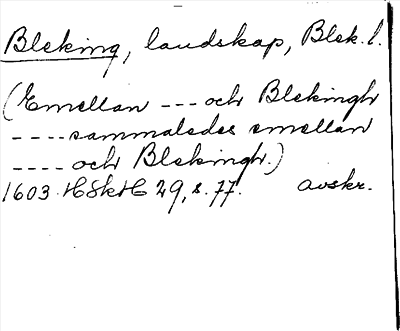 Bleking, landskap, Blek. l.
(Emellan --- och Blekingh
---- sammaledes emellan
---- och Blekingh.)
1603. HSkH 29, s. 77. avskr.